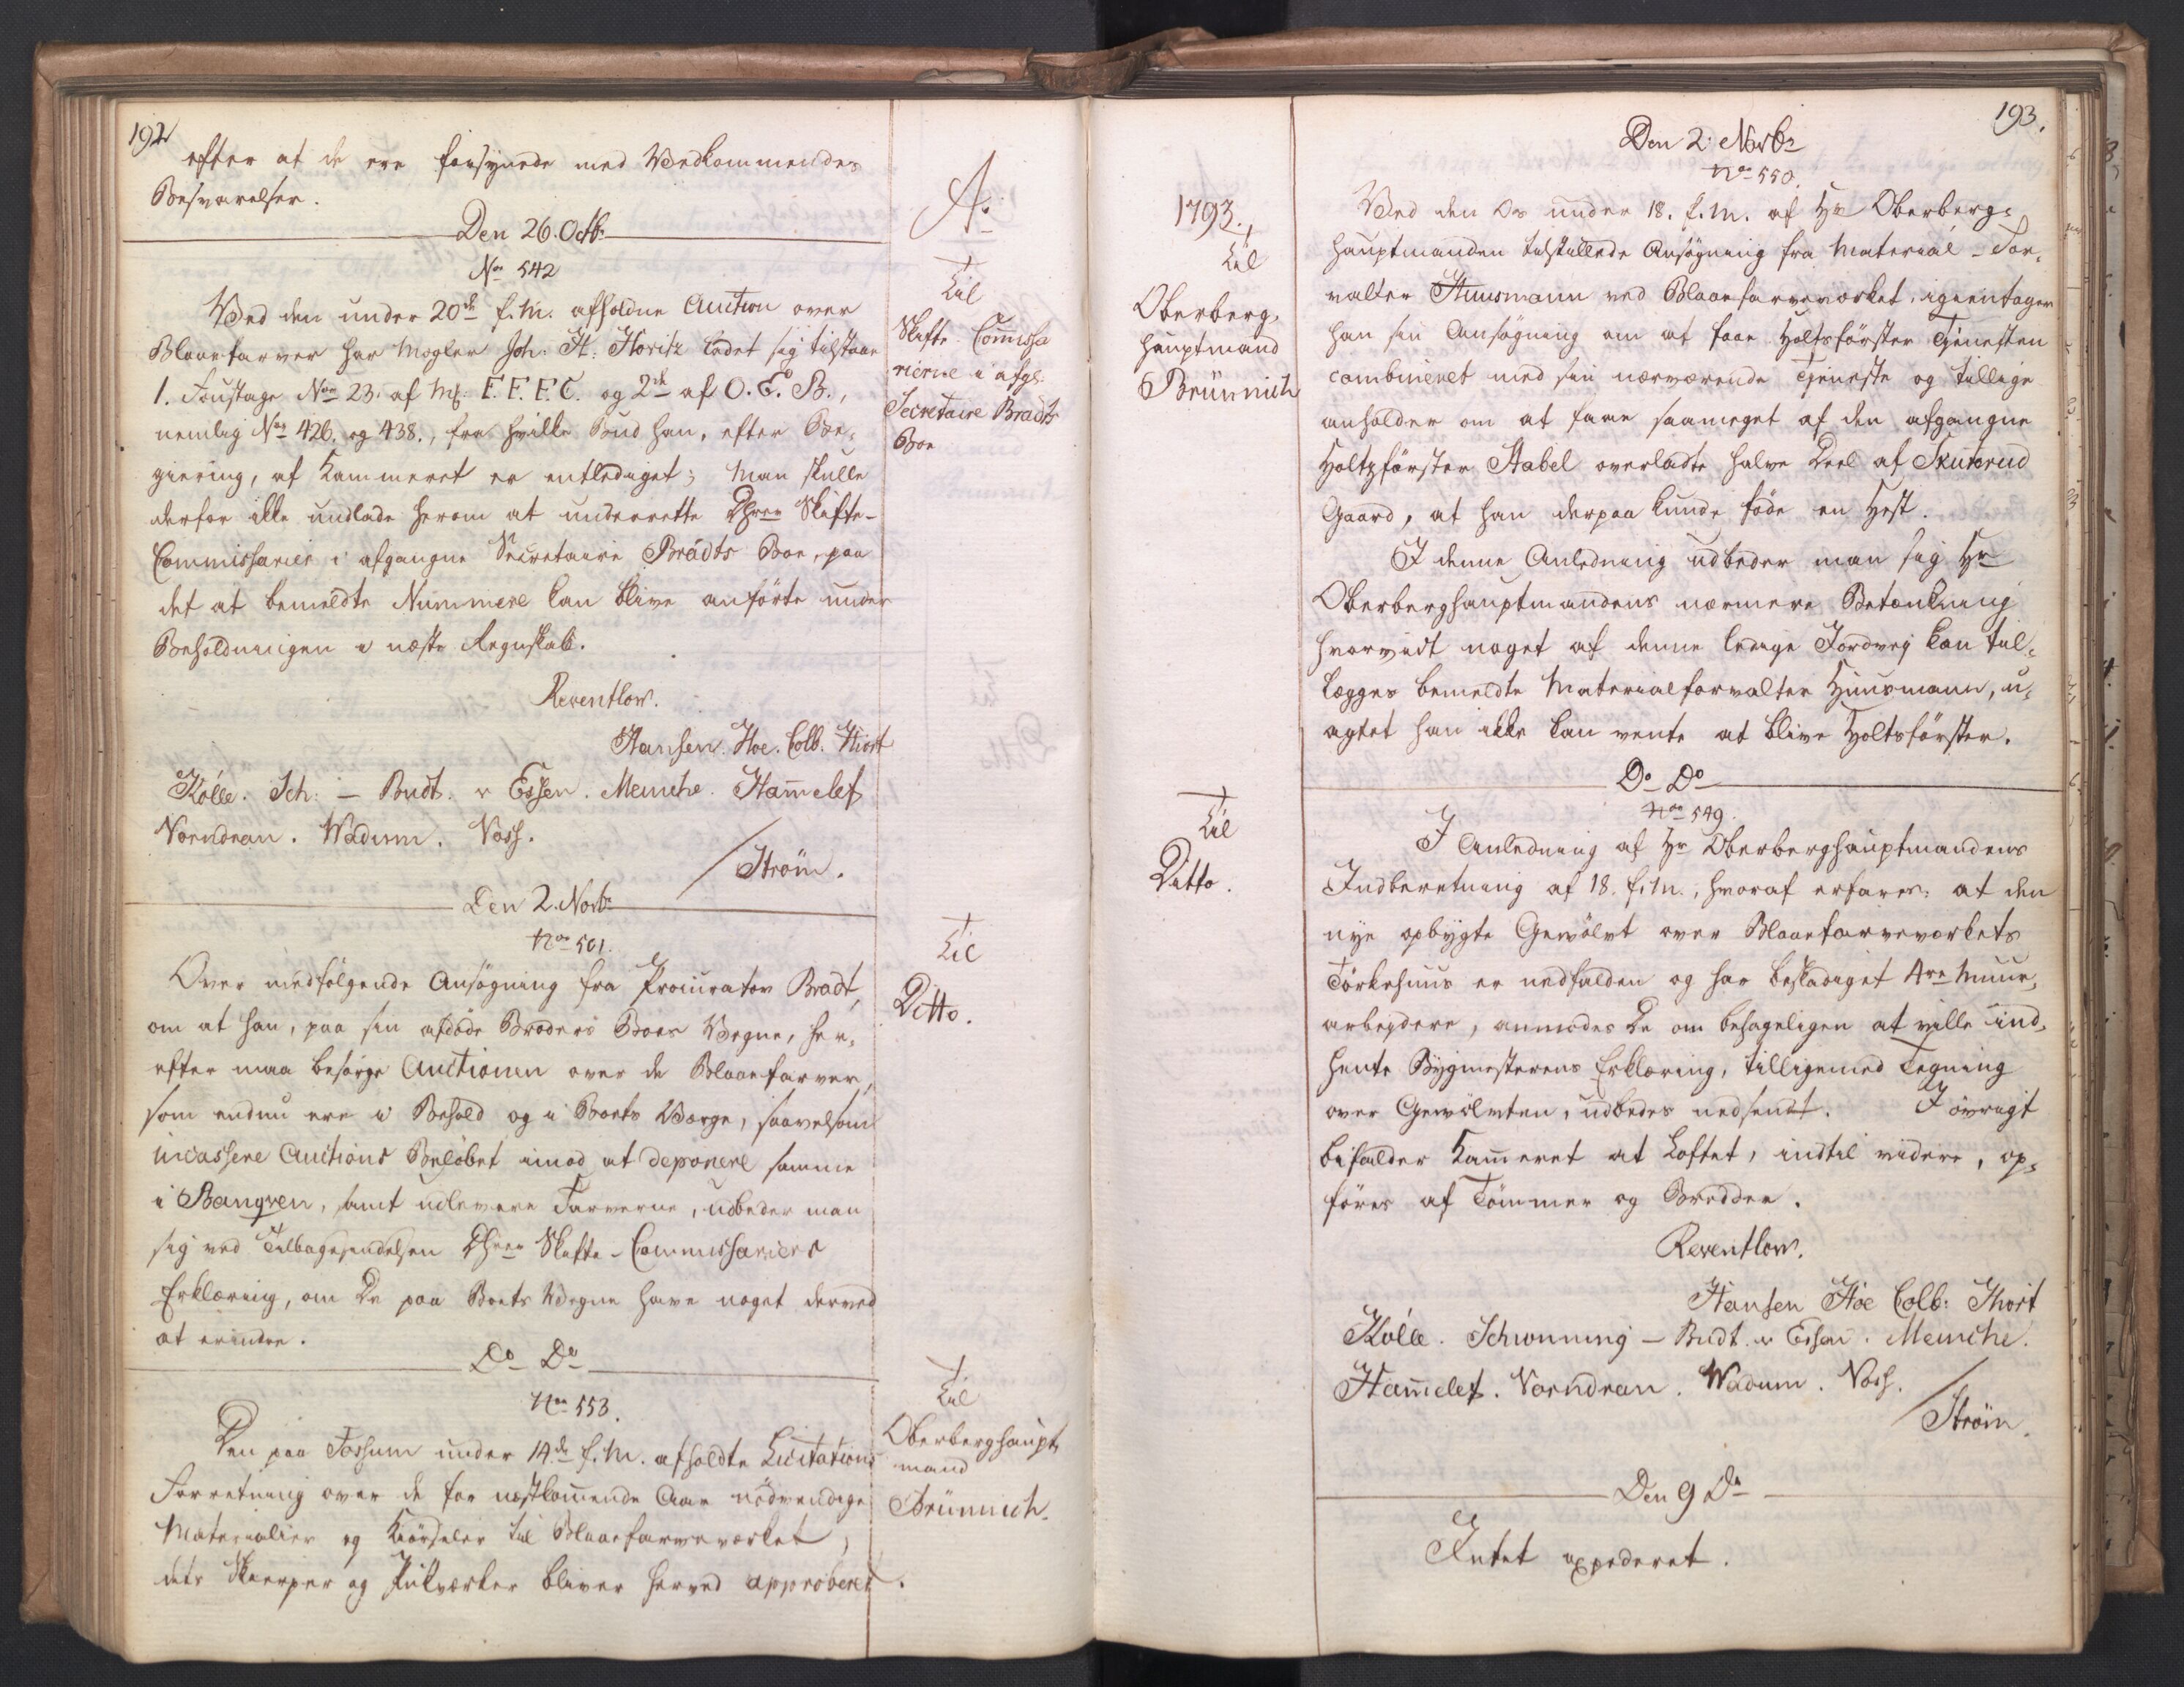 192
efter at de ere forsynede med Vedkommendes
Besvarelser.
Den 26. Octbr
No 542
Ved den under 20de f. M. afholdne Auction over
Blaaefarver har Mægler Joh: H: Horisz ladet sig tilslaae
1. Foustage No 23. af Mf: F. F. F. C. og 2de af O. E. B.,
nemlig No 426. og 438., fra hvilke Bud han, efter Be-
giering, af Kammeret er entlediget; Man skulle
derfor ikke undlade herom at underrette Dhrr Skifte-
Commissairer i afgangne Secretaire Brådts Boe, paa
det at bemeldte Nummere kan blive anførte under
Beholdningen i næste Regnskab.
Reventlow.
Hansen. Hoe. Colb. Hiort
Kölle. Sch: - Budt. v Essen. Meinche. Ham̄eleff
Vorndran. Wadum. Voss.
/ Strøm.
Den 2. Novbr
No 501.
Over medfølgende Ansøgning fra Procurator Bradt,
om at han, paa sin afdøde Broders Boes Vegne, her-
efter maa besørge Auctionen over de Blaaefarver,
som endnu ere i Behold og i Boets Værge, saavelsom
incassere Auctions Beløbet imod at deponere samme
i Banqven, samt udlevere Farverne, udbeder man
sig ved Tilbagesendelsen Dhrr Skifte-Commissariers
Erklæring, om De paa Boets Vegne have noget derved
at erindre.
Do Do
No 553.
Den paa Fossum under 14de f. M. afholdte Licitations
Forretning over de for næstkom̄ende Aar nødvendige
Materialier og Kiørseler til Blaaefarveværket,
dets Skierper og Pukværker bliver herved approberet.
Ao
Til
Skifte-Com̄issa
rierne i afg:
Secretaire Bradts
Boe
Til
Ditto.
Til
Oberberghaupt
mand
Brünnich.
1793.
Til
Oberberg-
hauptmand
Brünnich
Til
Ditto.
193.
Den 2: Novbr
No 550.
Ved den os under 18. f. M. af Hr Oberberg-
hauptmanden tilstillede Ansøgning fra Material-For-
valter Huusmann ved Blaaefarveværket, igientager
han sin Ansøgning om at faae Holtsförster Tienesten
combineret med sin nærværende Tieneste og tillige
anholder om at faae saameget af den afgangne
Holtzförster Stabel overladte halve Deel af Skuterud
Gaard, at han derpaa kunde føde en Hest.
I denne Anledning udbeder man sig Hr
Oberberghauptmandens nærmere Betænkning
hvorvidt noget af denne ledige Jordvej kan til-
lægges bemeldte Materialforvalter Huusmann, u-
agtet han ikke kan vente at blive Holtsförster.
Do Do
No 549.
I Anledning af Hr Oberberghauptmandens
Indberetning af 18. f. M., hvoraf erfares: at den
nye opbygte Gewølvt over Blaaefarveværkets
Tørkehuus er nedfalden og har beskadiget 4re Muur-
arbeydere, anmodes De om behageligen at ville ind-
hente Bygmesterens Erklæring, tilligemed Tegning
over Gewølvten, udbedes nedsendt. I øvrigt
bifalder Kam̄eret at Loftet, indtil videre, op-
føres af Tømmer og Bredder.
Reventlow.
Hansen Hoe Colb: Hiort
Kölle. Schönning - Budt. v Essen. Meinche.
Ham̄eleff. Vorndran. Wadum. Voss.
/ Strøm.
Den 9 Do
Intet expederet.